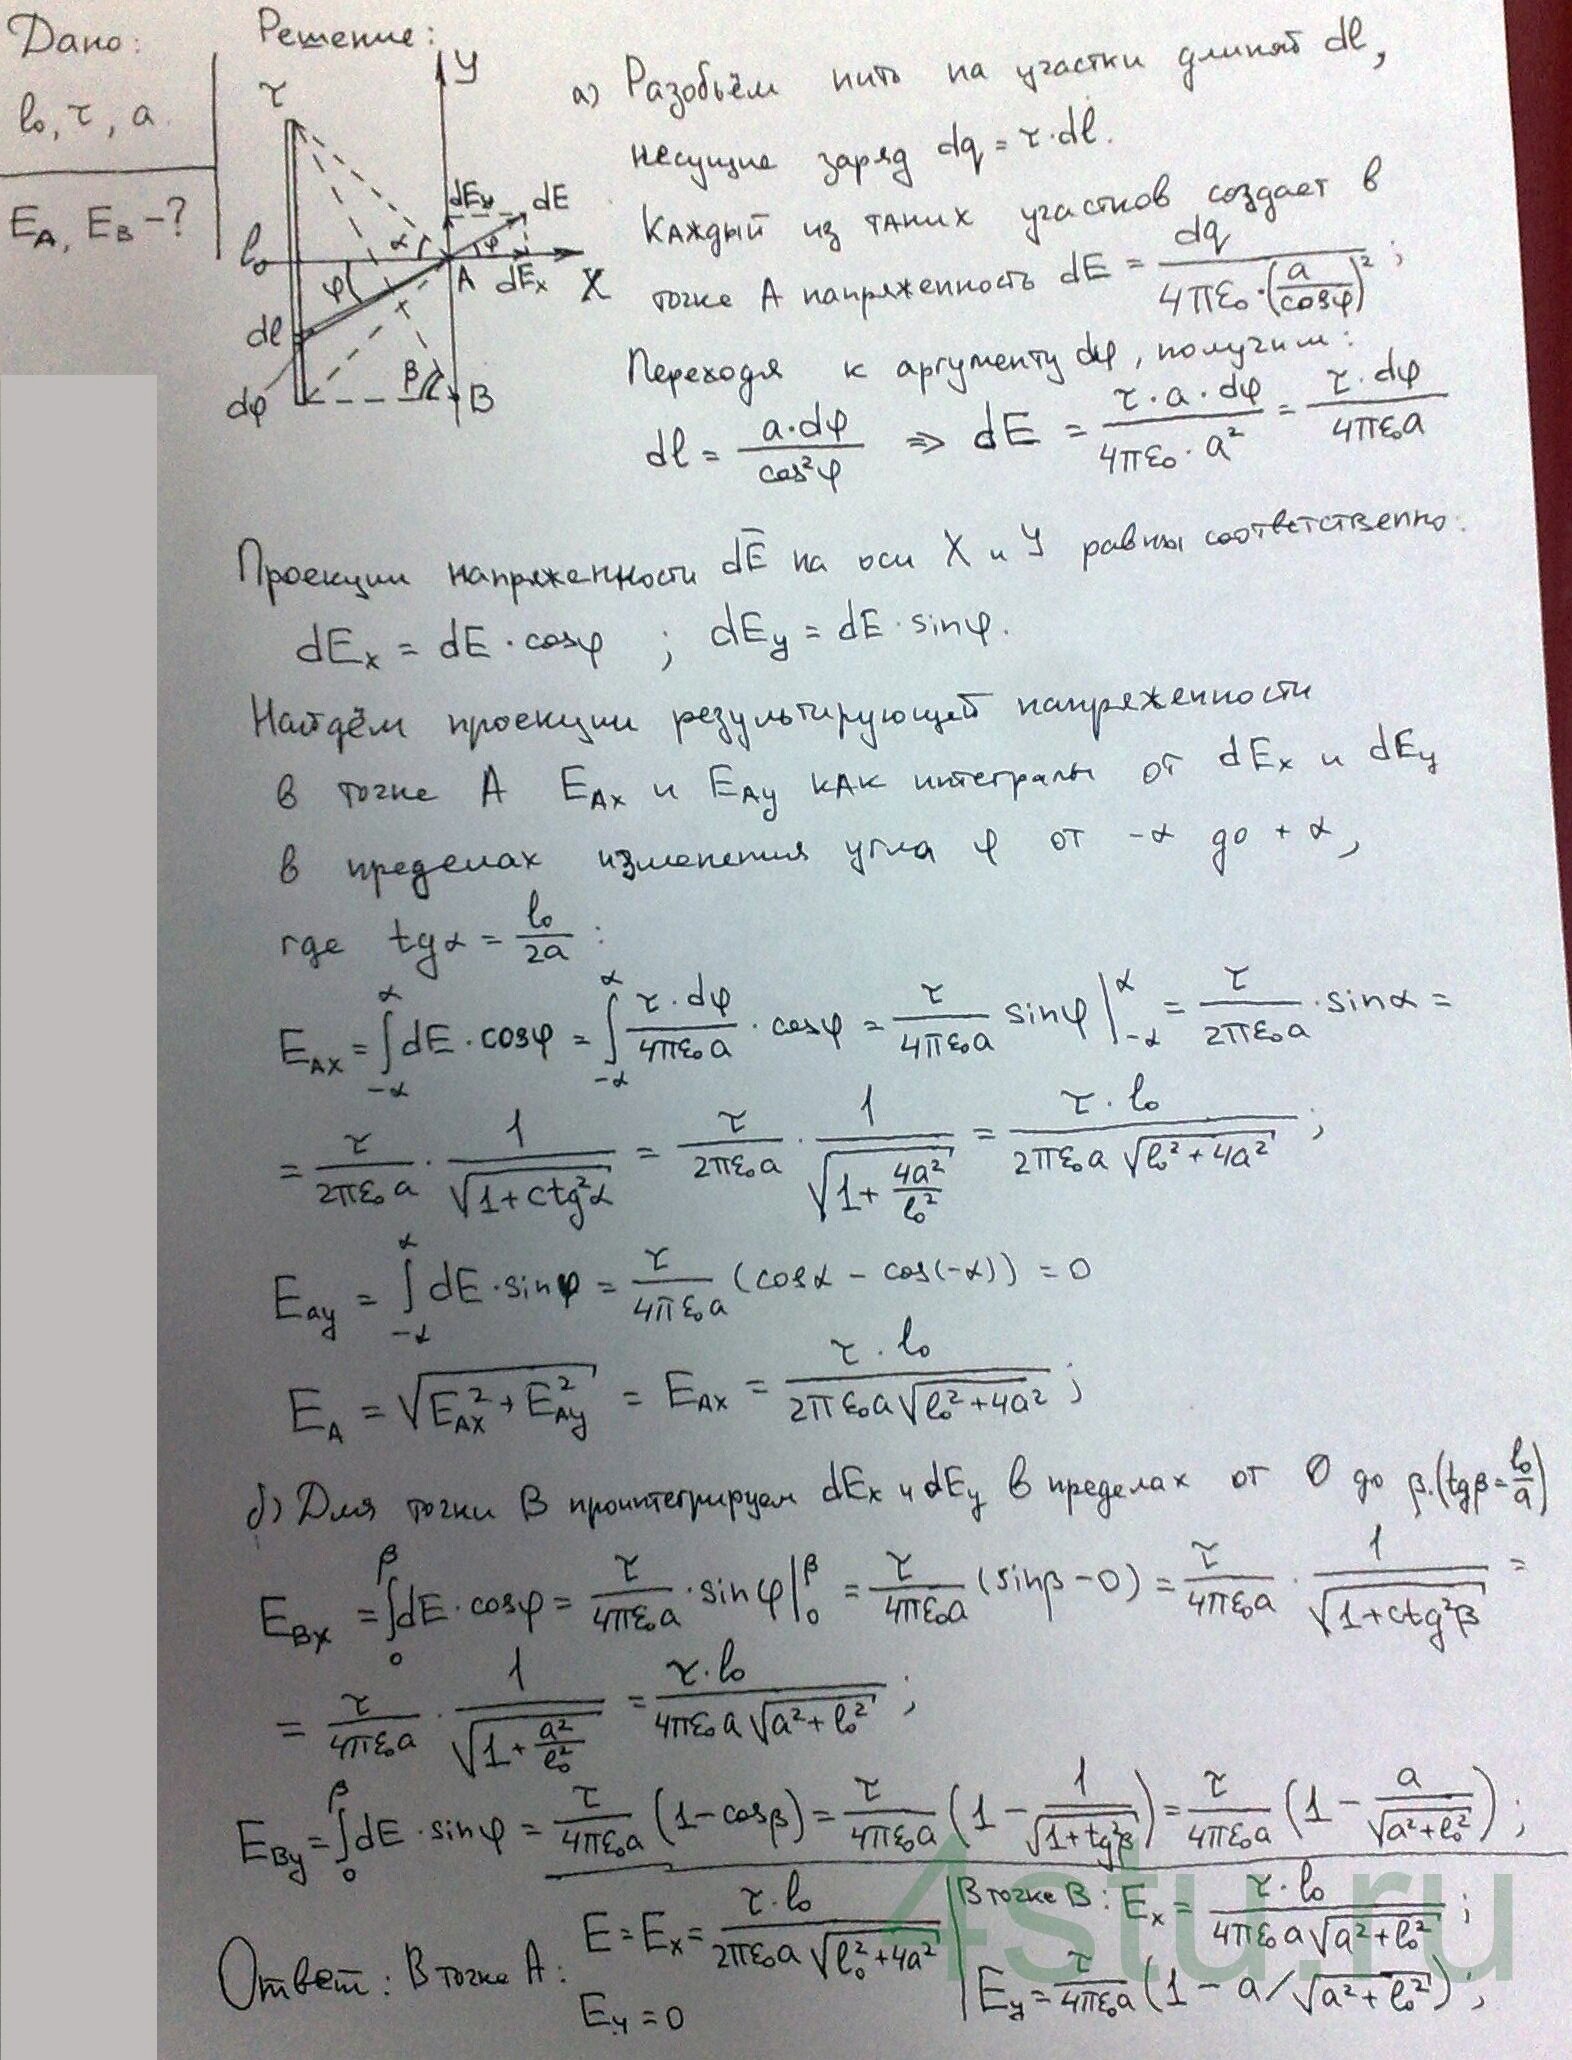 Дано:
l₀, τ, a.
E_A, E_B -?
Решение:
τ
y
dE_y
dE
l₀
α
φ
A
dE_x
X
φ
dl
β
B
dφ
а) Разобьём нить на участки длиной dl,
несущие заряд dq = τ·dl.
Каждый из таких участков создает в
точке A напряженность dE = dq / (4πε₀·(a/cosφ)²);
Переходя к аргументу dφ, получим:
dl = a·dφ / cos²φ ⇒ dE = τ·a·dφ / (4πε₀·a²) = τ·dφ / (4πε₀a)
Проекции напряженности dE̅ на оси X и Y равны соответственно:
dE_x = dE·cosφ ; dE_y = dE·sinφ.
Найдём проекции результирующей напряженности
в точке A E_Ax и E_Ay как интегралы от dE_x и dE_y
в пределах изменения угла φ от -α до +α,
где tgα = l₀/2a :
E_Ax = ∫_{-α}^{α} dE·cosφ = ∫_{-α}^{α} τ·dφ/(4πε₀a) · cosφ = τ/(4πε₀a) sinφ |_{-α}^{α} = τ/(2πε₀a) · sinα =
= τ/(2πε₀a) · 1/√(1+ctg²α) = τ/(2πε₀a) · 1/√(1+4a²/l₀²) = τ·l₀ / (2πε₀a√(l₀²+4a²)) ;
E_ay = ∫_{-α}^{α} dE·sinφ = τ/(4πε₀a) (cosα - cos(-α)) = 0
E_A = √(E_Ax² + E_Ay²) = E_Ax = τ·l₀ / (2πε₀a√(l₀²+4a²)) ;
б) Для точки B проинтегрируем dE_x и dE_y в пределах от 0 до β. (tgβ = l₀/a)
E_Bx = ∫_0^β dE·cosφ = τ/(4πε₀a) · sinφ |_0^β = τ/(4πε₀a) (sinβ - 0) = τ/(4πε₀a) · 1/√(1+ctg²β) =
= τ/(4πε₀a) · 1/√(1+a²/l₀²) = τ·l₀ / (4πε₀a√(a²+l₀²)) ;
E_By = ∫_0^β dE·sinφ = τ/(4πε₀a) (1-cosβ) = τ/(4πε₀a) (1 - 1/√(1+tg²β)) = τ/(4πε₀a) (1 - a/√(a²+l₀²)) ;
Ответ: В точке A: E = E_x = τ·l₀ / (2πε₀a√(l₀²+4a²))
E_y = 0
В точке B: E_x = τ·l₀ / (4πε₀a√(a²+l₀²)) ;
E_y = τ/(4πε₀a) (1 - a/√(a²+l₀²)) ;
4stu.ru